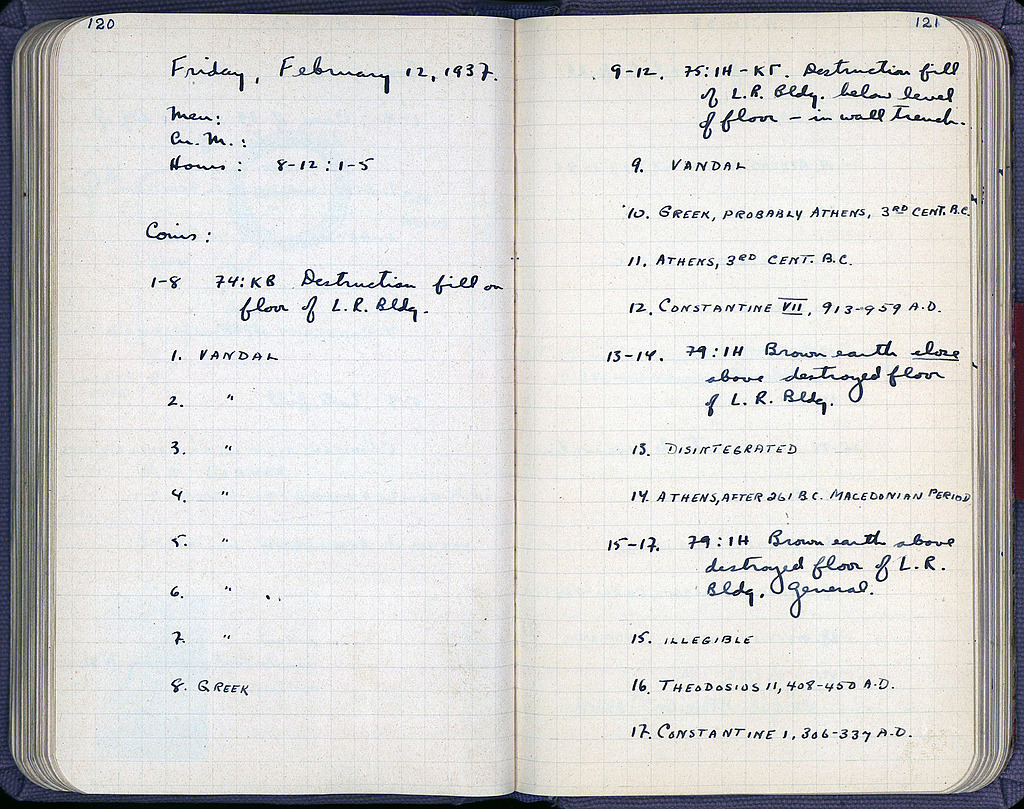 120
Friday, February 12, 1937.
Men:
Cu. M.:
Hours: 8-12 : 1-5
Coins:
1-8 74:KB Destruction fill on
floor of L.R. Bldg.
1. VANDAL
2. "
3. "
4. "
5. "
6. "
7. "
8. GREEK
121
9-12. 75:1H-KΓ. Destruction fill
of L.R. Bldg. below level
of floor – in wall trench.
9. VANDAL
10. GREEK, PROBABLY ATHENS, 3RD CENT. B.C.
11. ATHENS, 3RD CENT. B.C.
12. CONSTANTINE VII, 913-959 A.D.
13-14. 79:1H Brown earth close
above destroyed floor
of L.R. Bldg.
13. DISINTEGRATED
14. ATHENS, AFTER 261 B.C. MACEDONIAN PERIOD
15-17. 79:1H Brown earth above
destroyed floor of L.R.
Bldg. General.
15. ILLEGIBLE
16. THEODOSIUS II, 408-450 A.D.
17. CONSTANTINE I, 306-337 A.D.